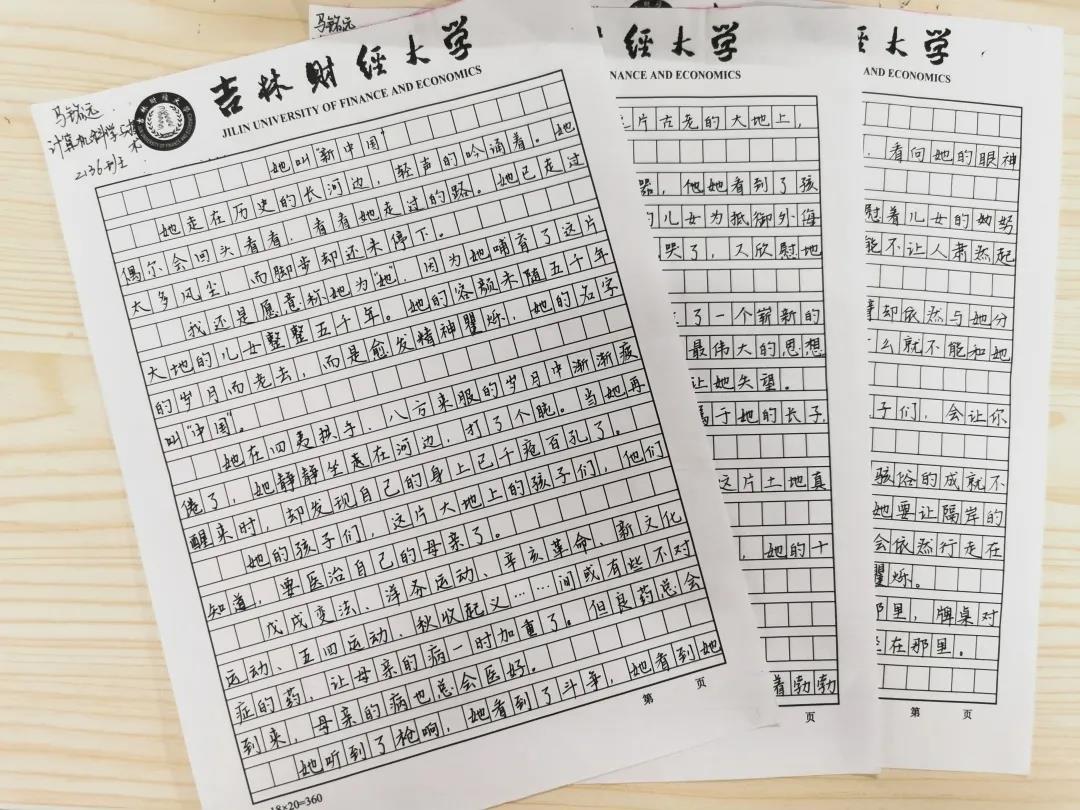 马铭远
计算机科学与
2136班
吉林财经大学
JILIN UNIVERSITY OF FINANCE AND ECONOMICS
她叫“新中国”
她走在历史的长河边，轻声的吟诵着。她
偶尔会回头看看，看看她走过的路。她已走过
太多风尘，而脚步却还未停下。
我还是愿意称她为“她”，因为她哺育了这片
大地的儿女整整五千年。她的容颜未随五千年
的岁月而老去，而是愈发精神矍烁，她的名字
叫“中国”。
她在四夷拱手、八方来服的岁月中渐渐疲
倦了，她静静坐在河边，打了个盹。当她再
醒来时，却发现自己的身上已千疮百孔了。
她的孩子们，这片大地上的孩子们，他们
知道，要医治自己的母亲了。
戊戌变法、洋务运动、辛亥革命、新文化
运动、五四运动、秋收起义……间或有些不对
症的药，让母亲的病一时加重了。但良药总会
到来，母亲的病也总会医好。
她听到了枪响，她看到了斗争，她看到她
第 页
18×20=360
马铭远
经大学
NANCE AND ECONOMICS
这片古老的大地上，
器，他她看到了孩
的儿女为抵御外侮
哭了，又欣慰地
了一个崭新的
最伟大的思想
让她失望。
属于她的长子，
这片土地真
，她的十
着勃勃
页
经大学
AND ECONOMICS
，看向她的眼神
慰着儿女的她努
能不让人肃然起
却依然与她分
么就不能和她
子们，会让你
骇俗的成就不
她要让隔岸的
会依然行走在
矍烁。
那里，牌桌对
在那里。
第 页